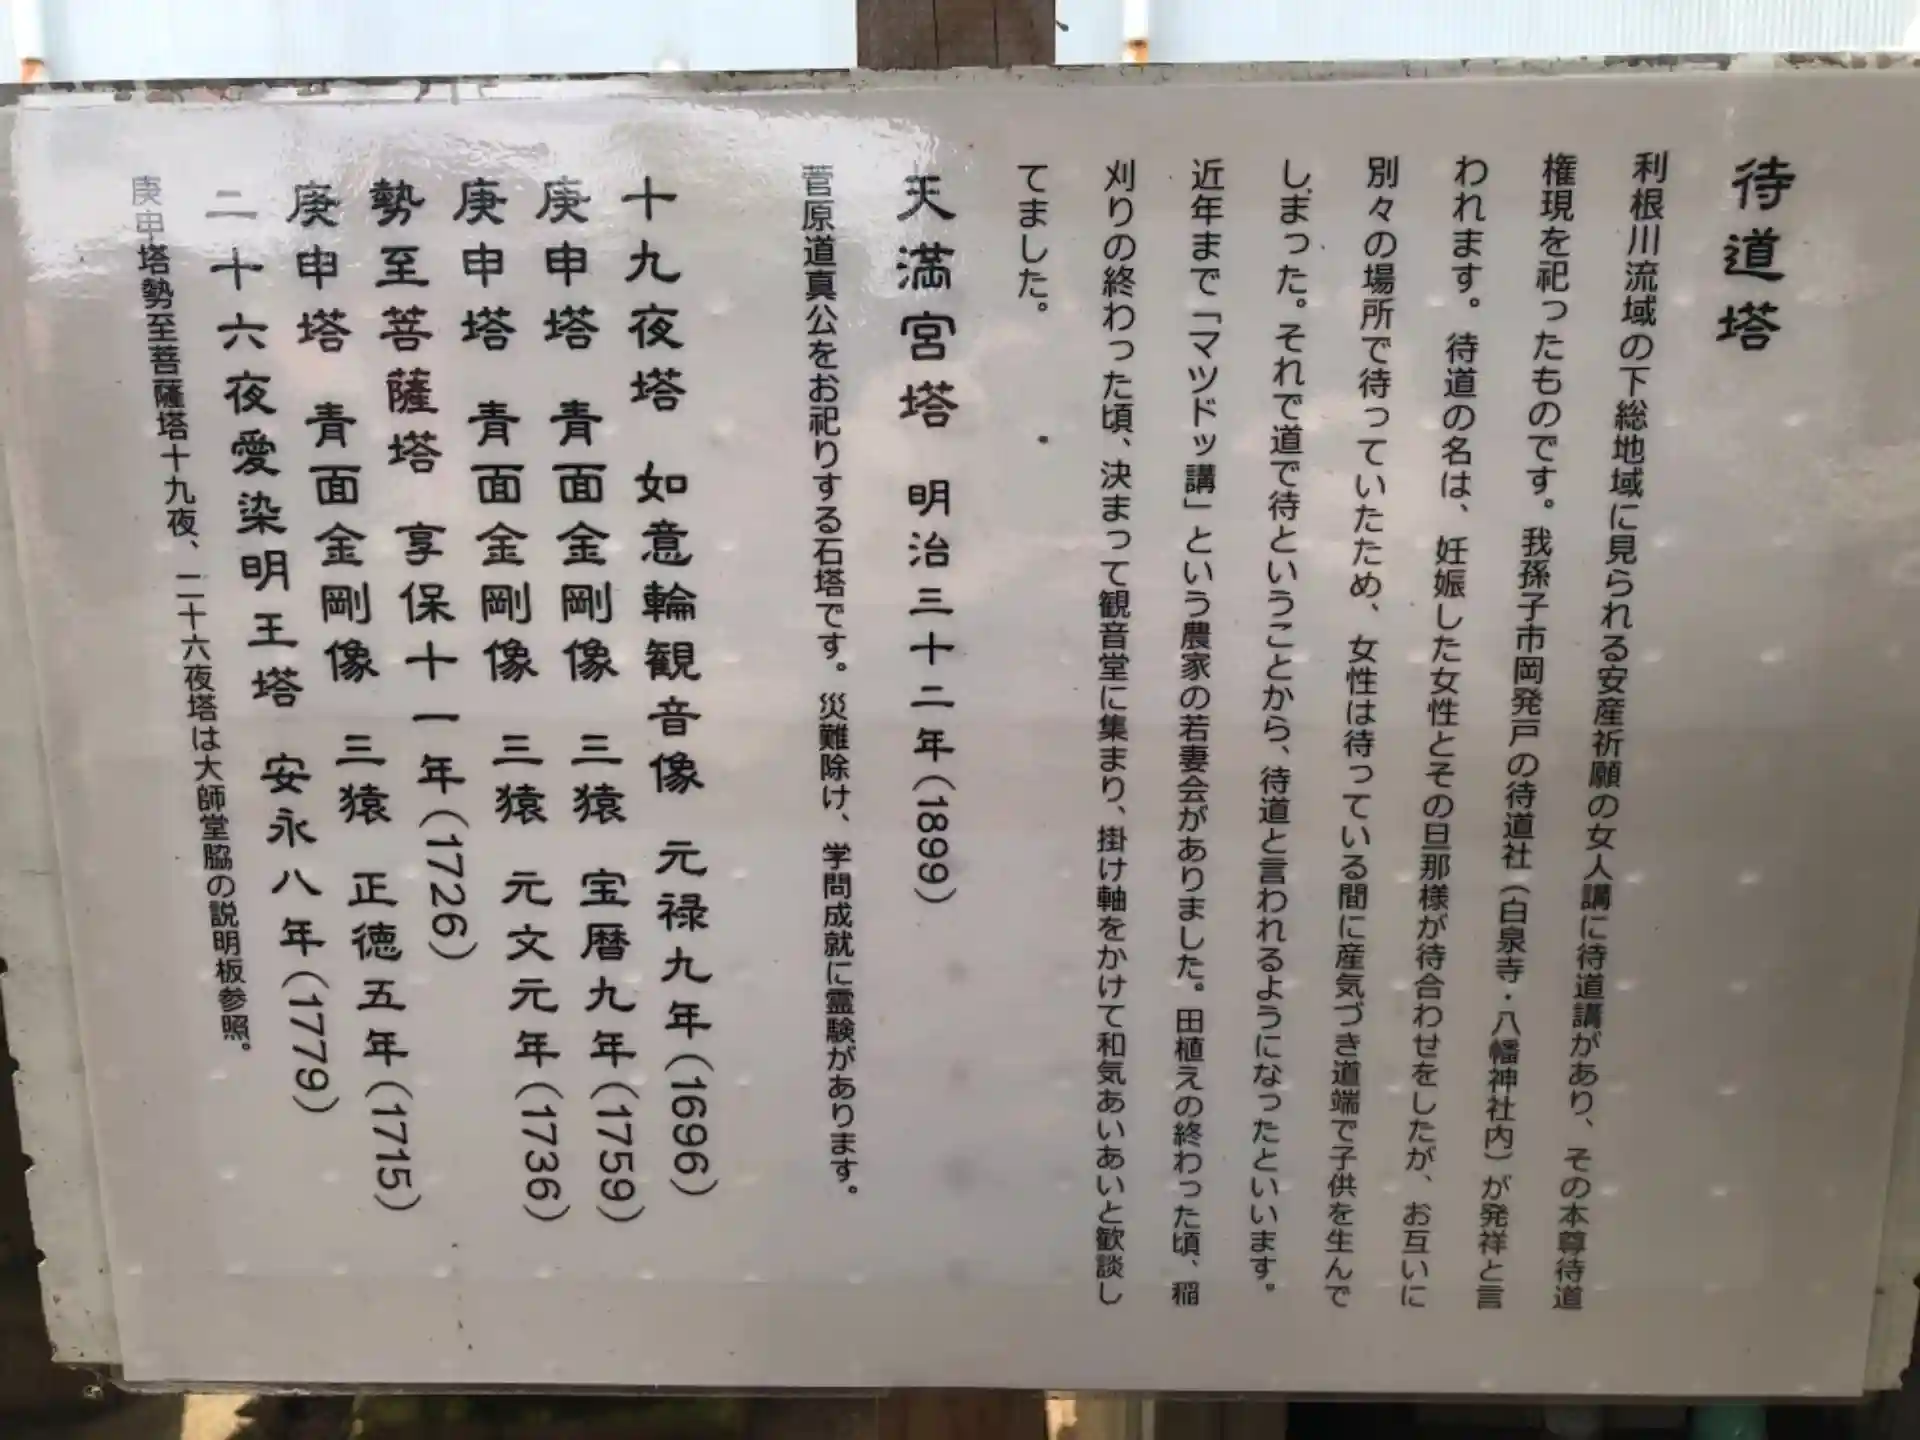 待道塔
利根川流域の下総地域に見られる安産祈願の女人講に待道講があり、その本尊待道
権現を祀ったものです。我孫子市岡発戸の待道社（白泉寺・八幡神社内）が発祥と言
われます。待道の名は、妊娠した女性とその旦那様が待合わせをしたが、お互いに
別々の場所で待っていたため、女性は待っている間に産気づき道端で子供を生んで
しまった。それで道で待ということから、待道と言われるようになったといいます。
近年まで「マツドッ講」という農家の若妻会がありました。田植えの終わった頃、稲
刈りの終わった頃、決まって観音堂に集まり、掛け軸をかけて和気あいあいと歓談し
てました。
天満宮塔 明治三十二年（1899）
菅原道真公をお祀りする石塔です。災難除け、学問成就に霊験があります。
十九夜塔 如意輪観音像 元禄九年（1696）
庚申塔 青面金剛像 三猿 宝暦九年（1759）
庚申塔 青面金剛像 三猿 元文元年（1736）
勢至菩薩塔 享保十一年（1726）
庚申塔 青面金剛像 三猿 正徳五年（1715）
二十六夜愛染明王塔 安永八年（1779）
庚申塔勢至菩薩塔十九夜、二十六夜塔は大師堂脇の説明板参照。